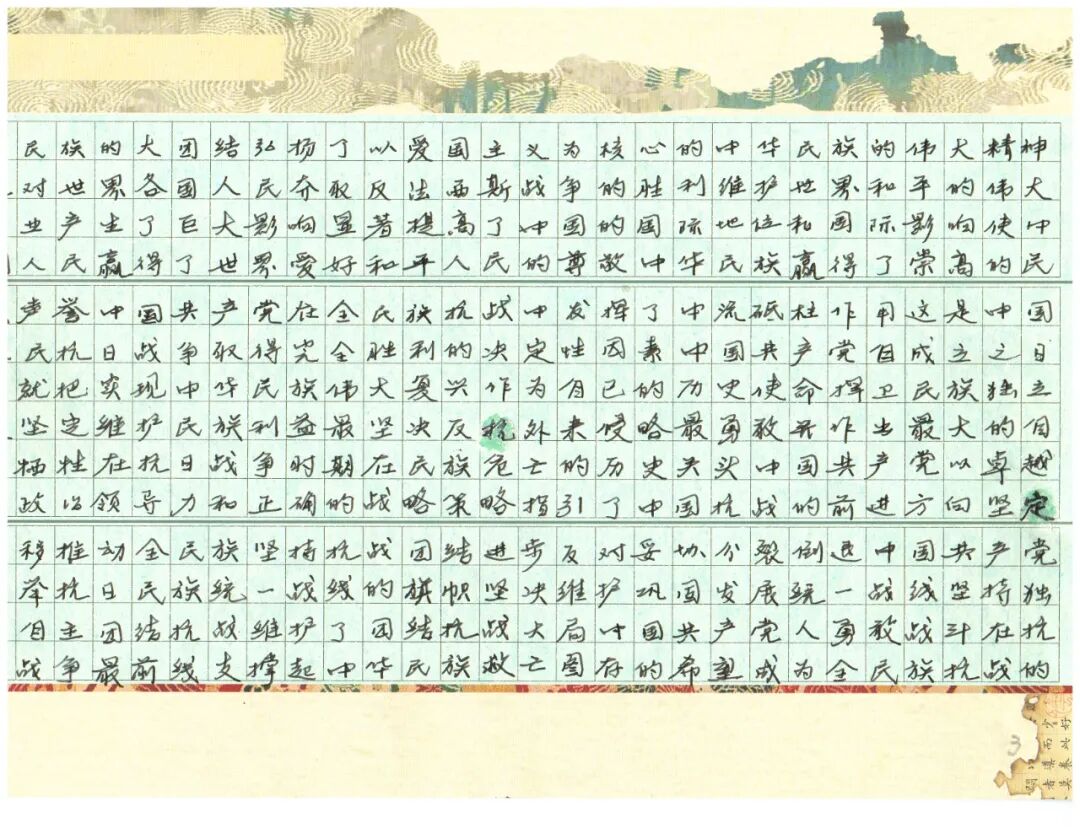 民族的大团结弘扬了以爱国主义为核心的中华民族的伟大精神
对世界各国人民夺取反法西斯战争的胜利维护世界和平的伟大
业产生了巨大影响显著提高了中国的国际地位和国际影响使中
人民赢得了世界爱好和平人民的尊敬中华民族赢得了崇高的民
声誉中国共产党在全民族抗战中发挥了中流砥柱作用这是中国
民抗日战争取得完全胜利的决定性因素中国共产党自成立之日
就把实现中华民族伟大复兴作为自己的历史使命挥卫民族独立
坚定维护民族利益最坚决反抗外来侵略最勇敢并作出最大的自
牺牲在抗日战争时期在民族危亡的历史关头中国共产党以卓越
政治领导力和正确的战略策略指引了中国抗战的前进方向坚定
移推动全民族坚持抗战团结进步反对妥协分裂倒退中国共产党
举抗日民族统一战线的旗帜坚决维护巩固发展统一战线坚持独
自主团结抗战维护了团结抗战大局中国共产党人勇敢战斗在抗
战争最前线支撑起中华民族救亡图存的希望成为全民族抗战的
3